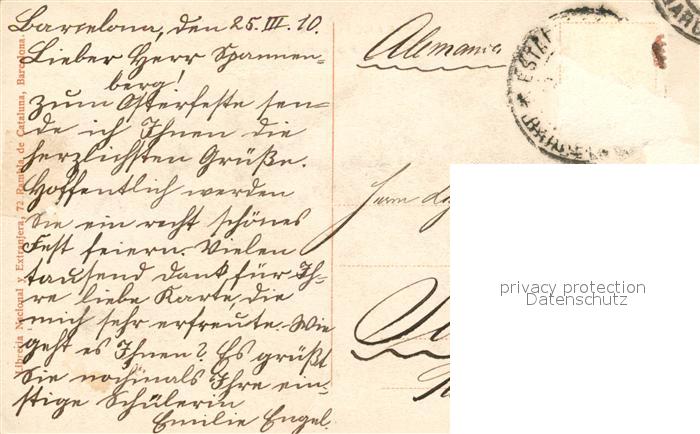 Barcelona, den 25.III.10.
Lieber Herr Spannen-
berg!
Zum Osterfeste sen-
de ich Ihnen die
herzlichsten Grüße.
Hoffentlich werden
Sie ein recht schönes
Fest feiern. Vielen
tausend dank für Ih-
re liebe Karte, die
mich sehr erfreute. Wie
geht es Ihnen? Es grüßt
Sie nochmals Ihre ein-
stige Schülerin
Emilie Engel.
Libreria Nacional y Extranjera, 72 Rambla de Cataluna, Barcelona.
Alemania
ESTAF
Herrn
privacy protection
Datenschutz